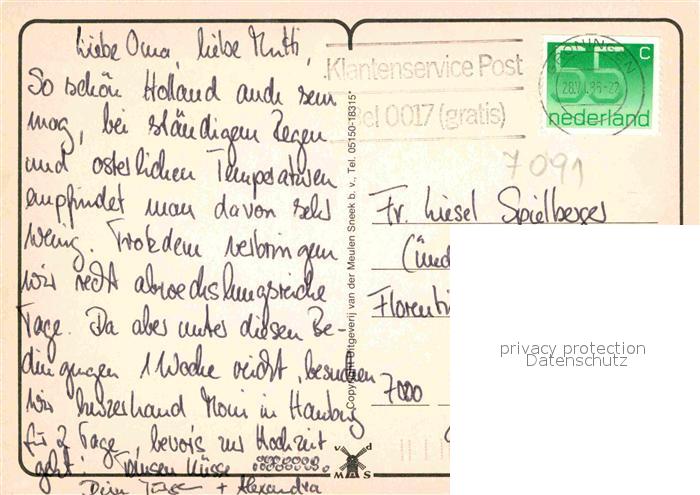 Liebe Oma, liebe Mutti,
So schön Holland auch sein
mag, bei ständigem Regen
und osterlichen Temperaturen
empfindet man davon sehr
wenig. Trotzdem verbringen
wir recht abwechslungsreiche
Tage. Da aber unter diesen Be-
dingungen 1 Woche reicht, besuchen
wir kurzerhand Moni in Hamburg
für 2 Tage, bevor's zur Hochzeit
geht! Tausen Küsse
Dein + Alexandra
Copyright Uitgeverij van der Meulen Sneek b.v., Tel. 05150-18315*
v d
MAS
Klantenservice Post
Bel 0017 (gratis)
55 c
nederland
7091
Fr. Liesel Spielberger
Florenti
7000
privacy protection
Datenschutz